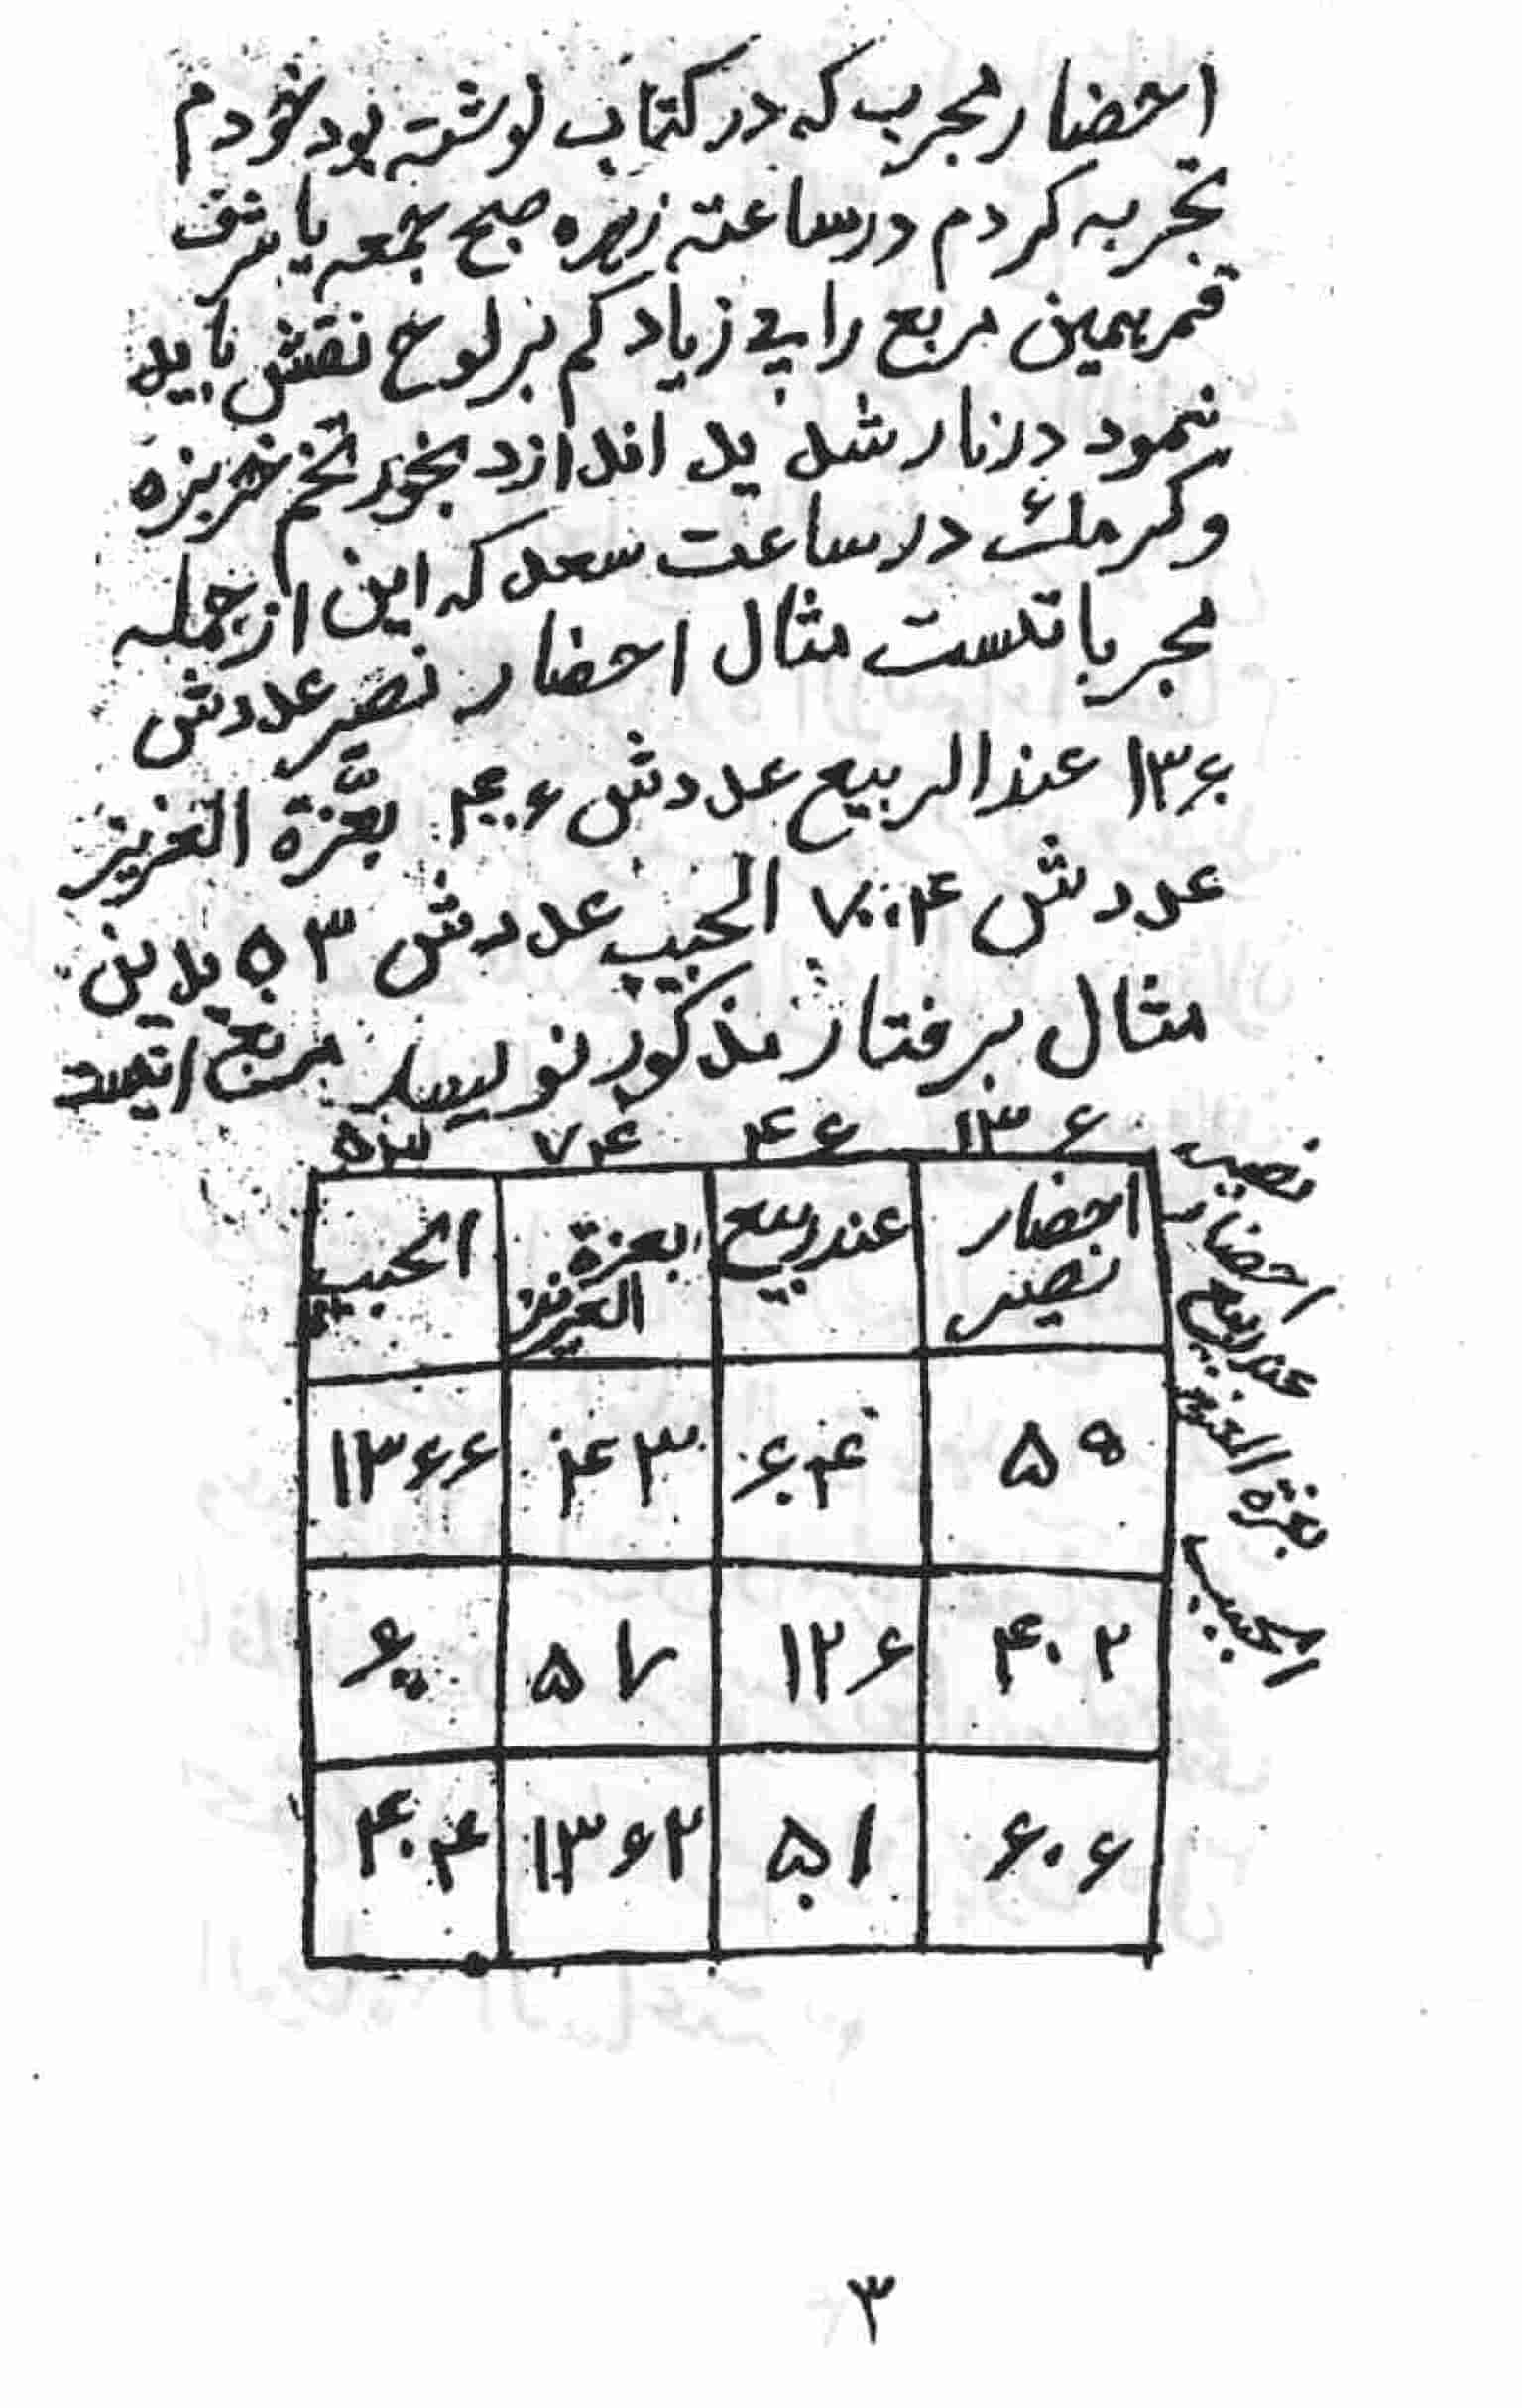 احضار مجرب که در کتاب نوشته بود خودم
تجربه کردم در ساعته زهره صبح جمعه یا شرف
قمر همین مربع را بی زیاد کم بر لوح نقش باید
نمود در نار شدید اندازد بخور تخم خربزه
و کرملک در ساعت سعد که این از جمله
مجرباتست مثال احضار نصیر عددش
۱۳۶ عند الربیع عددش ۴۰۶ بعزّة العزیز
عددش ۷۰۴ الحبیب عددش ۵۳ بدین
مثال برفتار مذکور نویسد مربع اینست
۱۳۶ ۴۶ ۷۴ ۵۳
احضار نصیر عند ربیع بعزة العزیز الحبیب
۵۹ ۶۰۴ ۴۰۳ ۱۳۶۶
۴۰۲ ۱۲۶ ۵۷
۶۰۶ ۵۱ ۱۳۶۲ ۴۰۴
نصیر
احضار
عند ربیع
بعزة العزیز
الحبیب
۳